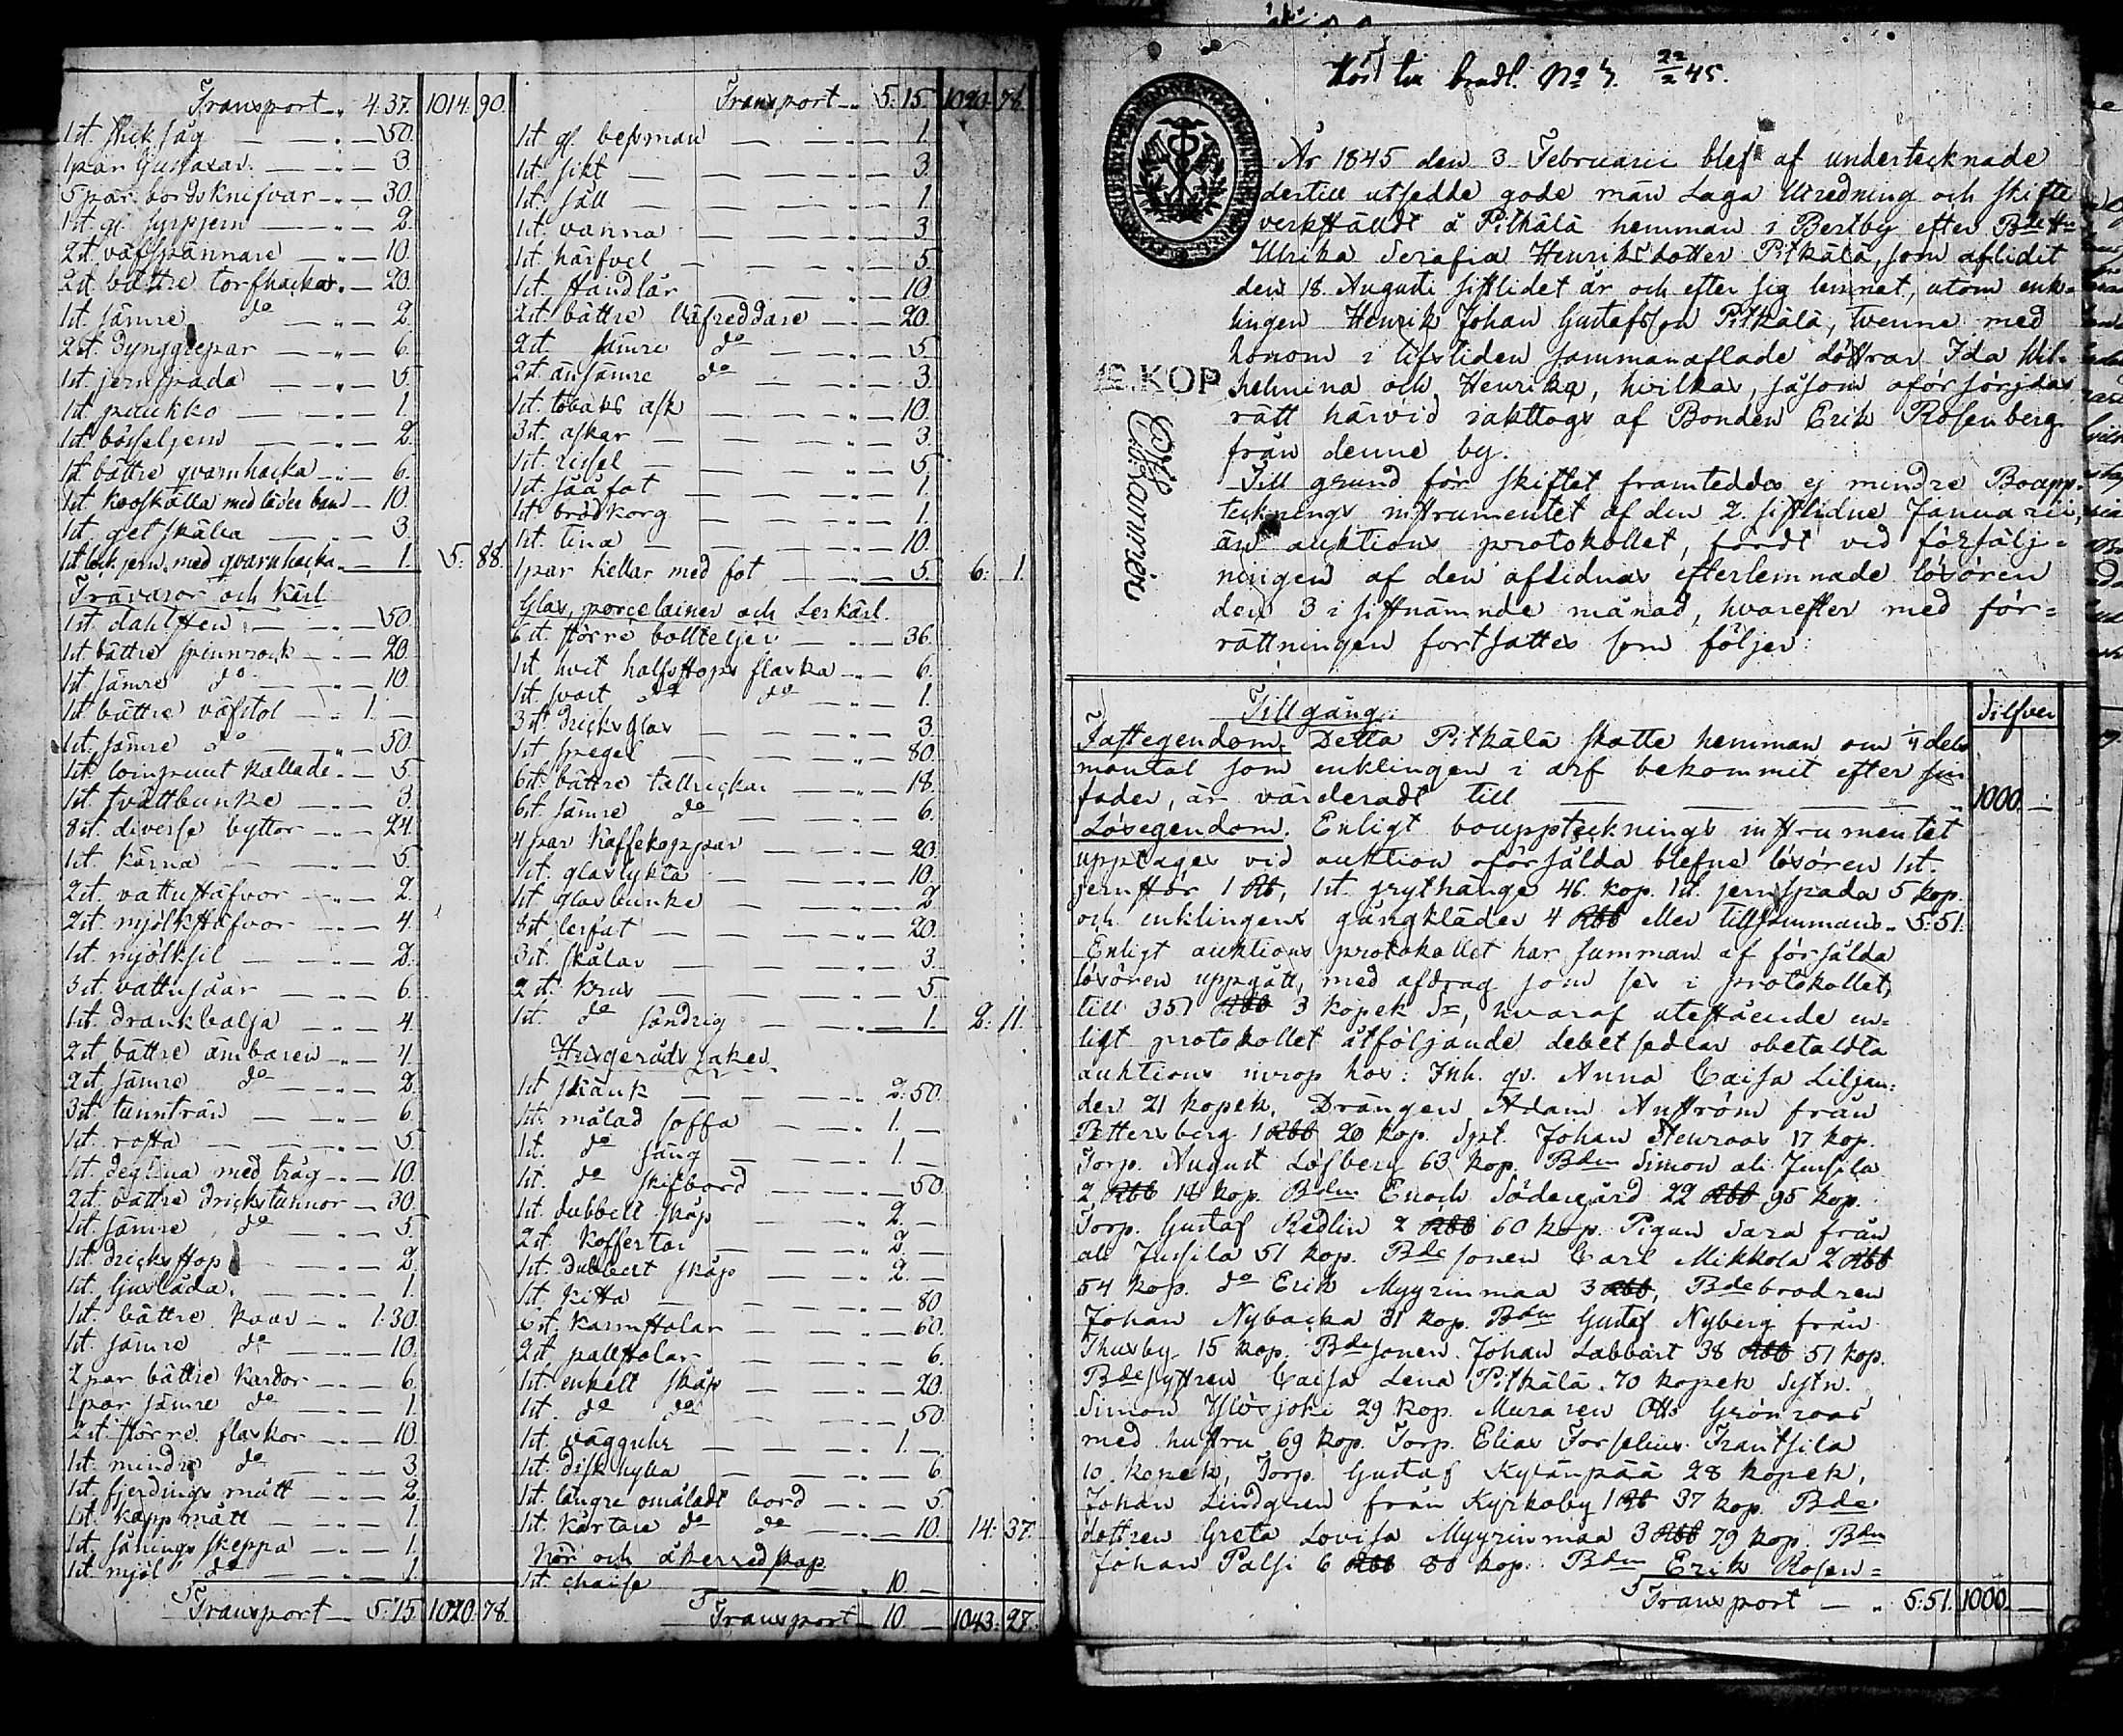 Transport 4.37. 1014. 90.
1 st. stick såg 50.
1 par Gussaxar 3.
5 par bordsknifvar 30.
1 st. gl. syrpjern 2.
2 st. väfspännare 10.
2 st. bättre torfhackor 20.
1 st. sämre do 2.
2 st. dynggrepar 6.
1 st. jernspada 5.
1 st. puukko 1.
1 st. bösseljern 2.
1 st. bättre qvarnhacka 6.
1 st. koskälla med läder band 10.
1 st. getskälla 3.
1 st. jern med qvarnhacka 1. 5. 88.
Trävaror och kärl
1 st. 50.
1 st. bättre spinnrock 20
1 st. sämre do 10
1 st. bättre väfstol 1.
1 st. sämre do 50.
1 st. kallade 5.
1 st. tvättbunke 3.
8 st. diverse byttor 24.
1 st. kärna 5.
2 st. vattustäfvor 2.
2 st. mjölkstäfvor 4.
1 st. mjölksil 2.
3 st. vattusåar 6.
1 st. drankbalja 4.
2 st. bättre ämbaren 4.
2 st. sämre do 2.
3 st. tunnträn 6.
1 st. rosta 5.
1 st. degtina med tråg 10.
2 st. bättre drickstunnor 30.
1 st. sämre do 5.
1 st. dricksstop 2.
1 st. ljuslåda 1.
1 st. bättre kaar 1.30.
1 st. sämre do 10.
2 par bättre kardor 6.
1 par sämre do 1.
2 st. större flaskor 10.
1 st. mindre do 3.
1 st. fjerdings mått 2.
1 st. kapp mått 1.
1 st. sånings skeppa 1.
1 st. mjöl do 1.
Transport 5.15. 1020. 78.
Transport 5.15. 1020. 78.
1 st. gl. besman 1.
1 st. sikt 3.
1 st. såll 1.
1 st. vanna 3.
1 st. härfvel 5.
1 st. 10.
2 st. bättre väfreddare 20.
2 st. sämre do 5.
2 st. änsämre do 3.
1 st. tobaks ask 10.
3 st. askar 3.
1 st. rissel 5.
1 st. sååfat 1.
1 st. brödkorg 1.
1 st. tina 10.
1 par kellar med fot 5. 6. 1.
Glas, porcelainer och Lerkärl.
6 st. större bouteljer 36.
1 st. hvit halfstops flaska 6.
1 st. svart do do 1.
3 st. dricksglas 3.
1 st. spegel 80.
6 st. bättre tallrickar 18.
6 st. sämre do 6.
4 par kaffekoppar 20.
1 st. glaslykta 10.
1 st. glasbunke 2
8 st. lerfat 20.
3 st. skålar 3.
2 st. krus 5.
1 st. do söndrig 1. 2. 11.
Husgeråds saker
1 st. skänk 2.50.
1 st. målad soffa 1.
1 st. do säng 1.
1 st. do skifbord 50.
1 st. dubbelt skåp 2.
2 st. koffertar 2.
1 st. dubbelt skåp 2.
1 st. kista 80
6 st. karmstolar 60.
2 st. pallstolar 6.
1 st. enkelt skåp 20.
1 st. do do 50.
1 st. vägguhr 1.
1 st. diskhylla 6.
1 st. längre omåladt bord 5.
1 st. kortare do do 10. 14. 37.
Kör och åkerredskap
1 st. chaise 10
Transport 10. 1043. 27.
No 7. 22/2 45.
År 1845 den 3 Februarii blef af undertecknade
dertill utsedde gode män Laga Utredning och skifte
verkstäldt å Pitkälä hemman i Bertby efter Bde Hu
Ulrika Serafia Henriksdotter Pitkälä, som aflidit
den 18 Augusti sistlidet år och efter sig lemnat, utom enk-
lingen Henrik Johan Gustafsson Pitkälä, tvenne med
honom i lifstiden sammanaflade döttrar Ida Wil-
15. KOP
helmina och Henrika, hvilkas, såsom oförsörgdas
rätt härvid iakttogs af Bonden Erik Rosenberg
från denne by.
Till grund för skiftet framteddes ej mindre Boupp-
tecknings instrumentet af den 2 sistlidne Januarii,
än auktions protokollet, fördt vid försälj-
ningen af den aflidnas efterlemnade lösören
den 3 i sistnämnde månad, hvarefter med för-
rättningen fortsattes som följer:
Silfver
Tillgång:
Fastegendom. Detta Pitkälä skatte hemman om 1/4 dels
mantal som enklingen i arf bekommit efter sin
fader, är värderadt till 1000.
Lösegendom. Enligt bouppteknings instrumentet
upptages vid auktion oförsålda blefne lösören 1 st.
jernstör 1 Rb, 1 st. grythänge 46 kop. 1 st. jernspada 5 kop.
och enklingens gångkläder 4 Rbb eller tillsammans 5.51.
Enligt auktions protokollet har summan af försålda
lösören uppgått, med afdrag som ses i protokollet,
till 351 Rbb 3 kopek Sr, hvaraf utestående en-
ligt protokollet åtföljande debetsedlar obetaldta
auktions inrop hos: Inh. qv. Anna Caisa Liljan-
der 21 kopek, Drängen Adam Anström från
Pettersberg 1 Rbb 20 kop. Johan Stenroos 17 kop.
Torp. August Löfberg 63 kop. Bdn Simon ali Jussila
2 Rbb 14 kop. Bdn Enoch Södergård 22 Rbb 95 kop.
Torp. Gustaf Redlin 2 Rbb 60 kop. Pigan Sara från
ali Jussila 51 kop. Bde sonen Carl Mikkola 2 Rbb
54 kop. do Erik Myyrinmaa 3 Rbb, Bde brodren
Johan Nybacka 31 kop. Bdn Gustaf Nyberg från
Thusby 15 kop. Bde sonen Johan Labbart 38 Rbb 51 kop.
Bde systren Caisa Lena Pitkälä 70 kopek Sytn.
Simon Ylösjoki 29 kop. Muraren Otto Grönroos
med hustru 69 kop. Torp. Elias Forselius Frantsila
10 kopek, Torp. Gustaf Kylänpää 28 kopek,
Johan Lindgren från Kyrkoby 1 Rb 37 kop. Bde
dottren Greta Lovisa Myyrinmaa 3 Rbb 79 kop. Bdn
Johan Palsi 6 Rbb 80 kop. Bdn Erik Rosen-
Transport 5.51. 1000.